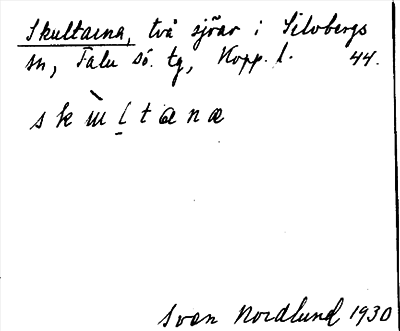 Skultarna, två sjöar i Silvbergs
sn, Falu sö. tg, Kopp. l. 44.
Sven Nordlund 1930